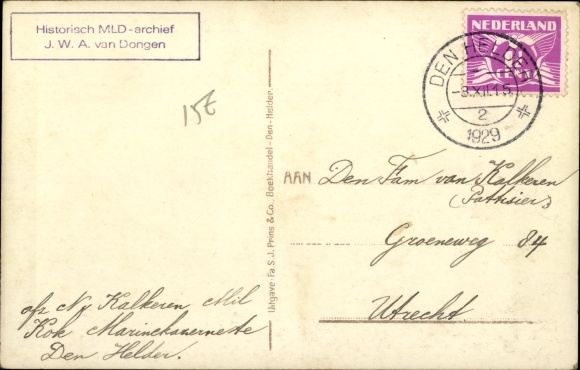 Historisch MLD-archief
J. W. A. van Dongen
NEDERLAND
CENT
DEN HELDER
-8.XII.15
2
1929
15E
Uitgave-Fa S.J. Prins & Co., Boekhandel-Den-Helder.
AAN Den Fam van Kalkeren
(Pattisier)
Groeneweg 84
Utrecht
afz N v Kalkeren Mil
Kok Marinekazernette
Den Helder.